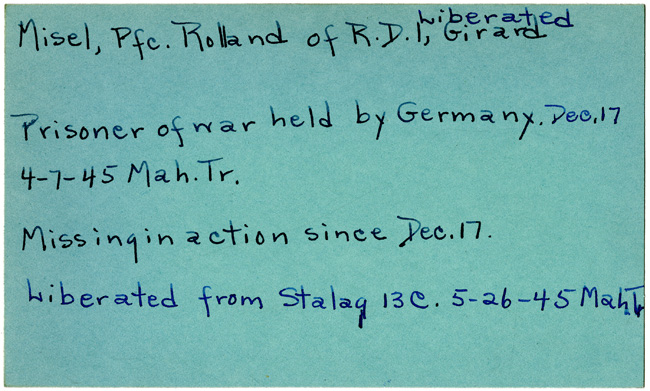 Liberated
Misel, Pfc. Rolland of R.D.1, Girard
Prisoner of war held by Germany. Dec.17
4-7-45 Mah.Tr.
Missing in action since Dec.17.
Liberated from Stalag 13C. 5-26-45 Mah.Tr